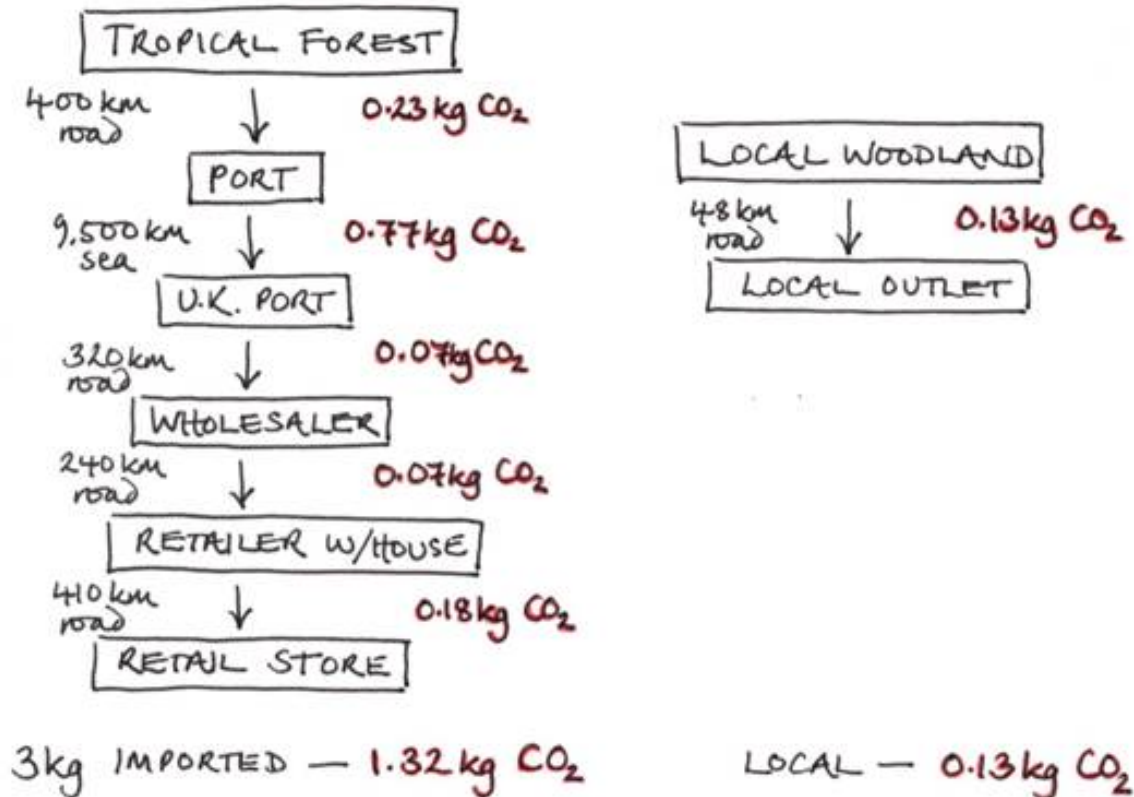 TROPICAL FOREST
400 km
road
0.23 kg CO₂
PORT
9,500 km
sea
0.77 kg CO₂
U.K. PORT
320 km
road
0.07kg CO₂
WHOLESALER
240 km
road
0.07kg CO₂
RETAILER W/HOUSE
410 km
road
0.18kg CO₂
RETAIL STORE
3kg IMPORTED — 1.32 kg CO₂
LOCAL WOODLAND
48 km
road
0.13 kg CO₂
LOCAL OUTLET
LOCAL — 0.13 kg CO₂